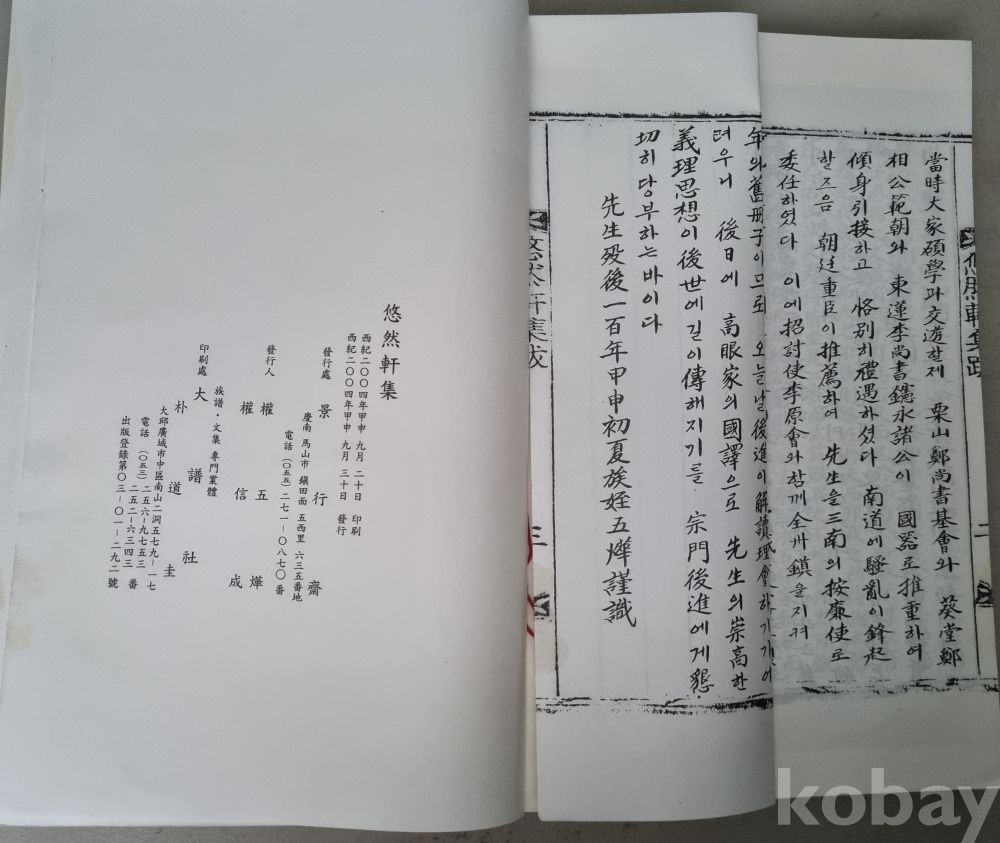 當時大家碩學과交遊할제 栗山鄭尙書基會와 葵堂鄭
相公範朝와 東蓮李尙書𨯶永諸公이 國器로推重하여
傾身引接하고 恪別히禮遇하셨다 南道에騷亂이鋒起
할즈음 朝廷重臣이推薦하여 先生을三南의按廉使로
委任하였다 이에招討使李原會와참께全州鎭을지켜
悠然軒集跋
二
年의舊冊子이므로 오늘날後進이解讀理會하기가어
려우니 後日에 高眼家의國譯으로 先生의崇高한
義理思想이後世에길이傳해지기를 宗門後進에게懇
切히당부하는바이다
先生歿後一百年甲申初夏族姪五燁謹識
悠然軒集跋
三
悠然軒集
西紀二〇〇四年甲申 九月 二十日 印刷
西紀二〇〇四年甲申 九月 三十日 發行
發行處 景行齋
慶南 馬山市 鎭田面 五西里 六三五番地
電話 (〇五五) 二七一-〇八七〇番
發行人 權五燁
權信成
族譜·文集 專門業體
印刷處 大譜社
朴道圭
大邱廣域市中區南山二洞五七九-一七
電話 (〇五三) 二五六-九七五三
二五二-六三四三 番
出版登錄第〇三-〇一-二九二號
kobay